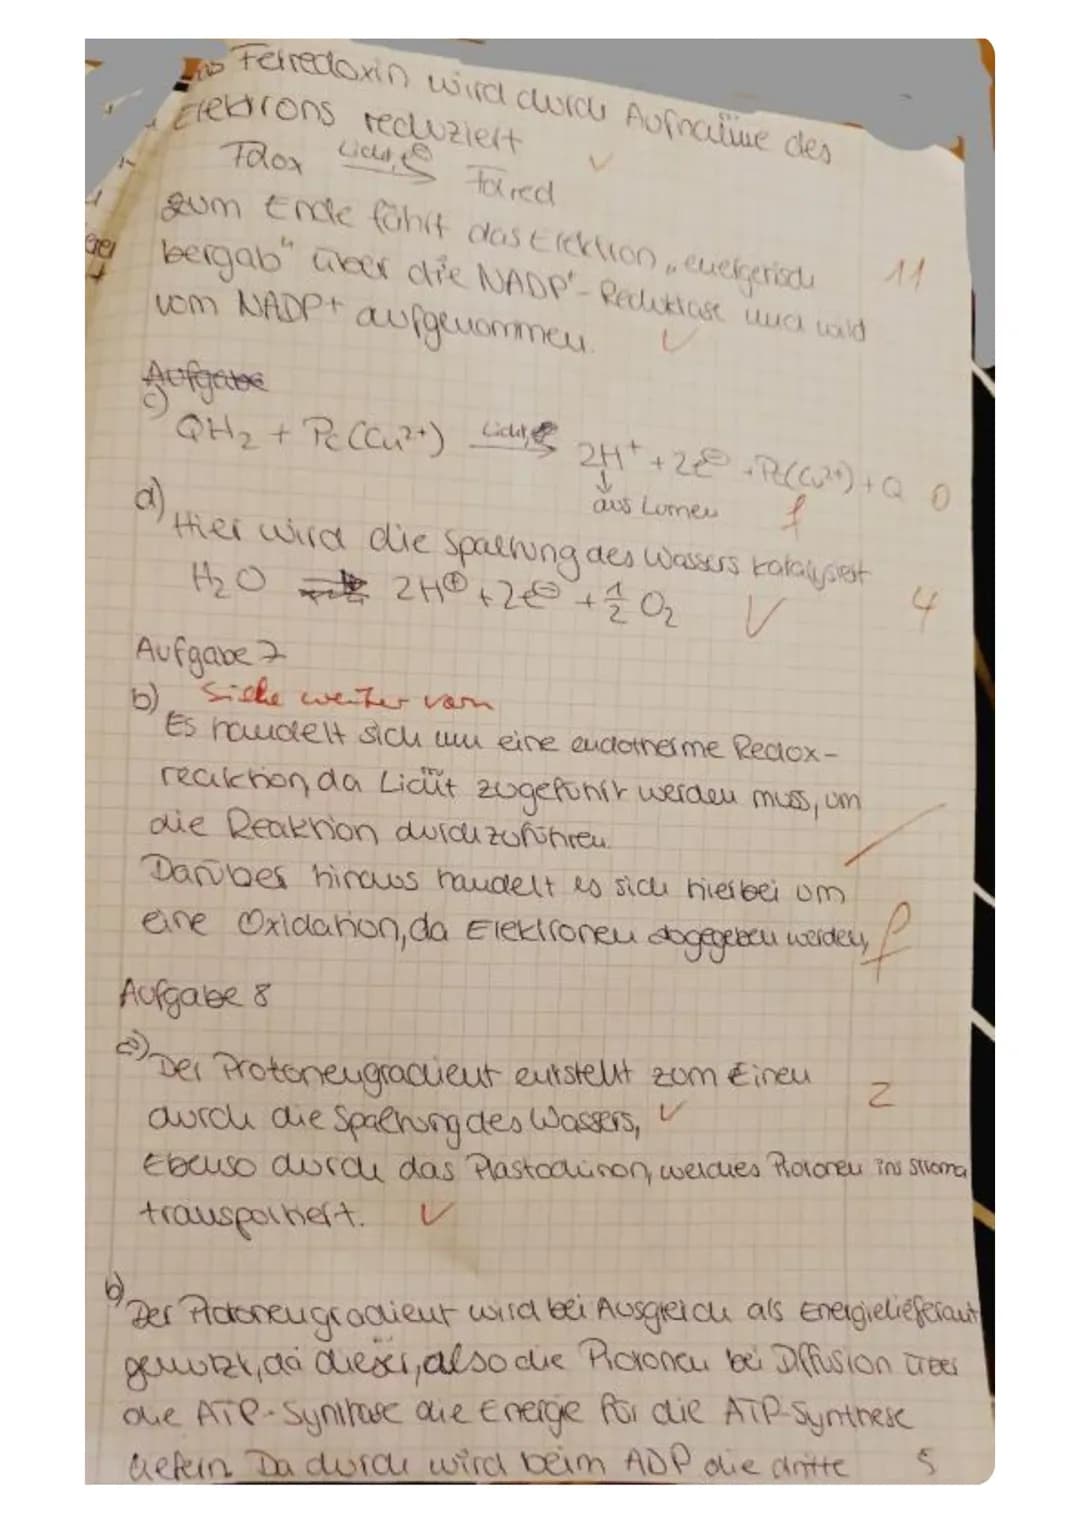 Ferredoxin wird durch Aufnahme des
Elektrons reduziert ✓
Fdox Licht, e⊖ → Fdred
zum Ende fährt das Elektron „energetisch
bergab" über die NADP⁺-Reduktase und wird 11
vom NADP+ aufgenommen. ✓
Aufgabe
c)
QH₂ + Pc(Cu²⁺) Licht → 2H⁺ + 2e⊖ + Pc(Cu²⁺) + Q 0
↓
aus Lumen f
d)
Hier wird die Spaltung des Wassers katalysiert
H₂O → 2H⊕ + 2e⊖ + 1/2 O₂ ✓ 4
Aufgabe 7
b) Siehe weiter vorn
Es handelt sich um eine endotherme Redox-
reaktion, da Licht zugeführt werden muss, um
die Reaktion durchzuführen.
Darüber hinaus handelt es sich hierbei um
eine Oxidation, da Elektronen abgegeben werden, f
Aufgabe 8
a)
Der Protonengradient entsteht zum Einen 2
durch die Spaltung des Wassers, ✓
Ebenso durch das Plastochinon, welches Protonen ins Stroma
transportiert. ✓
b)
Der Protonengradient wird bei Ausgleich als Energielieferant
genutzt, da dieser, also die Protonen bei Diffusion über
die ATP-Synthase die Energie für die ATP-Synthese
liefern. Dadurch wird beim ADP die dritte 5